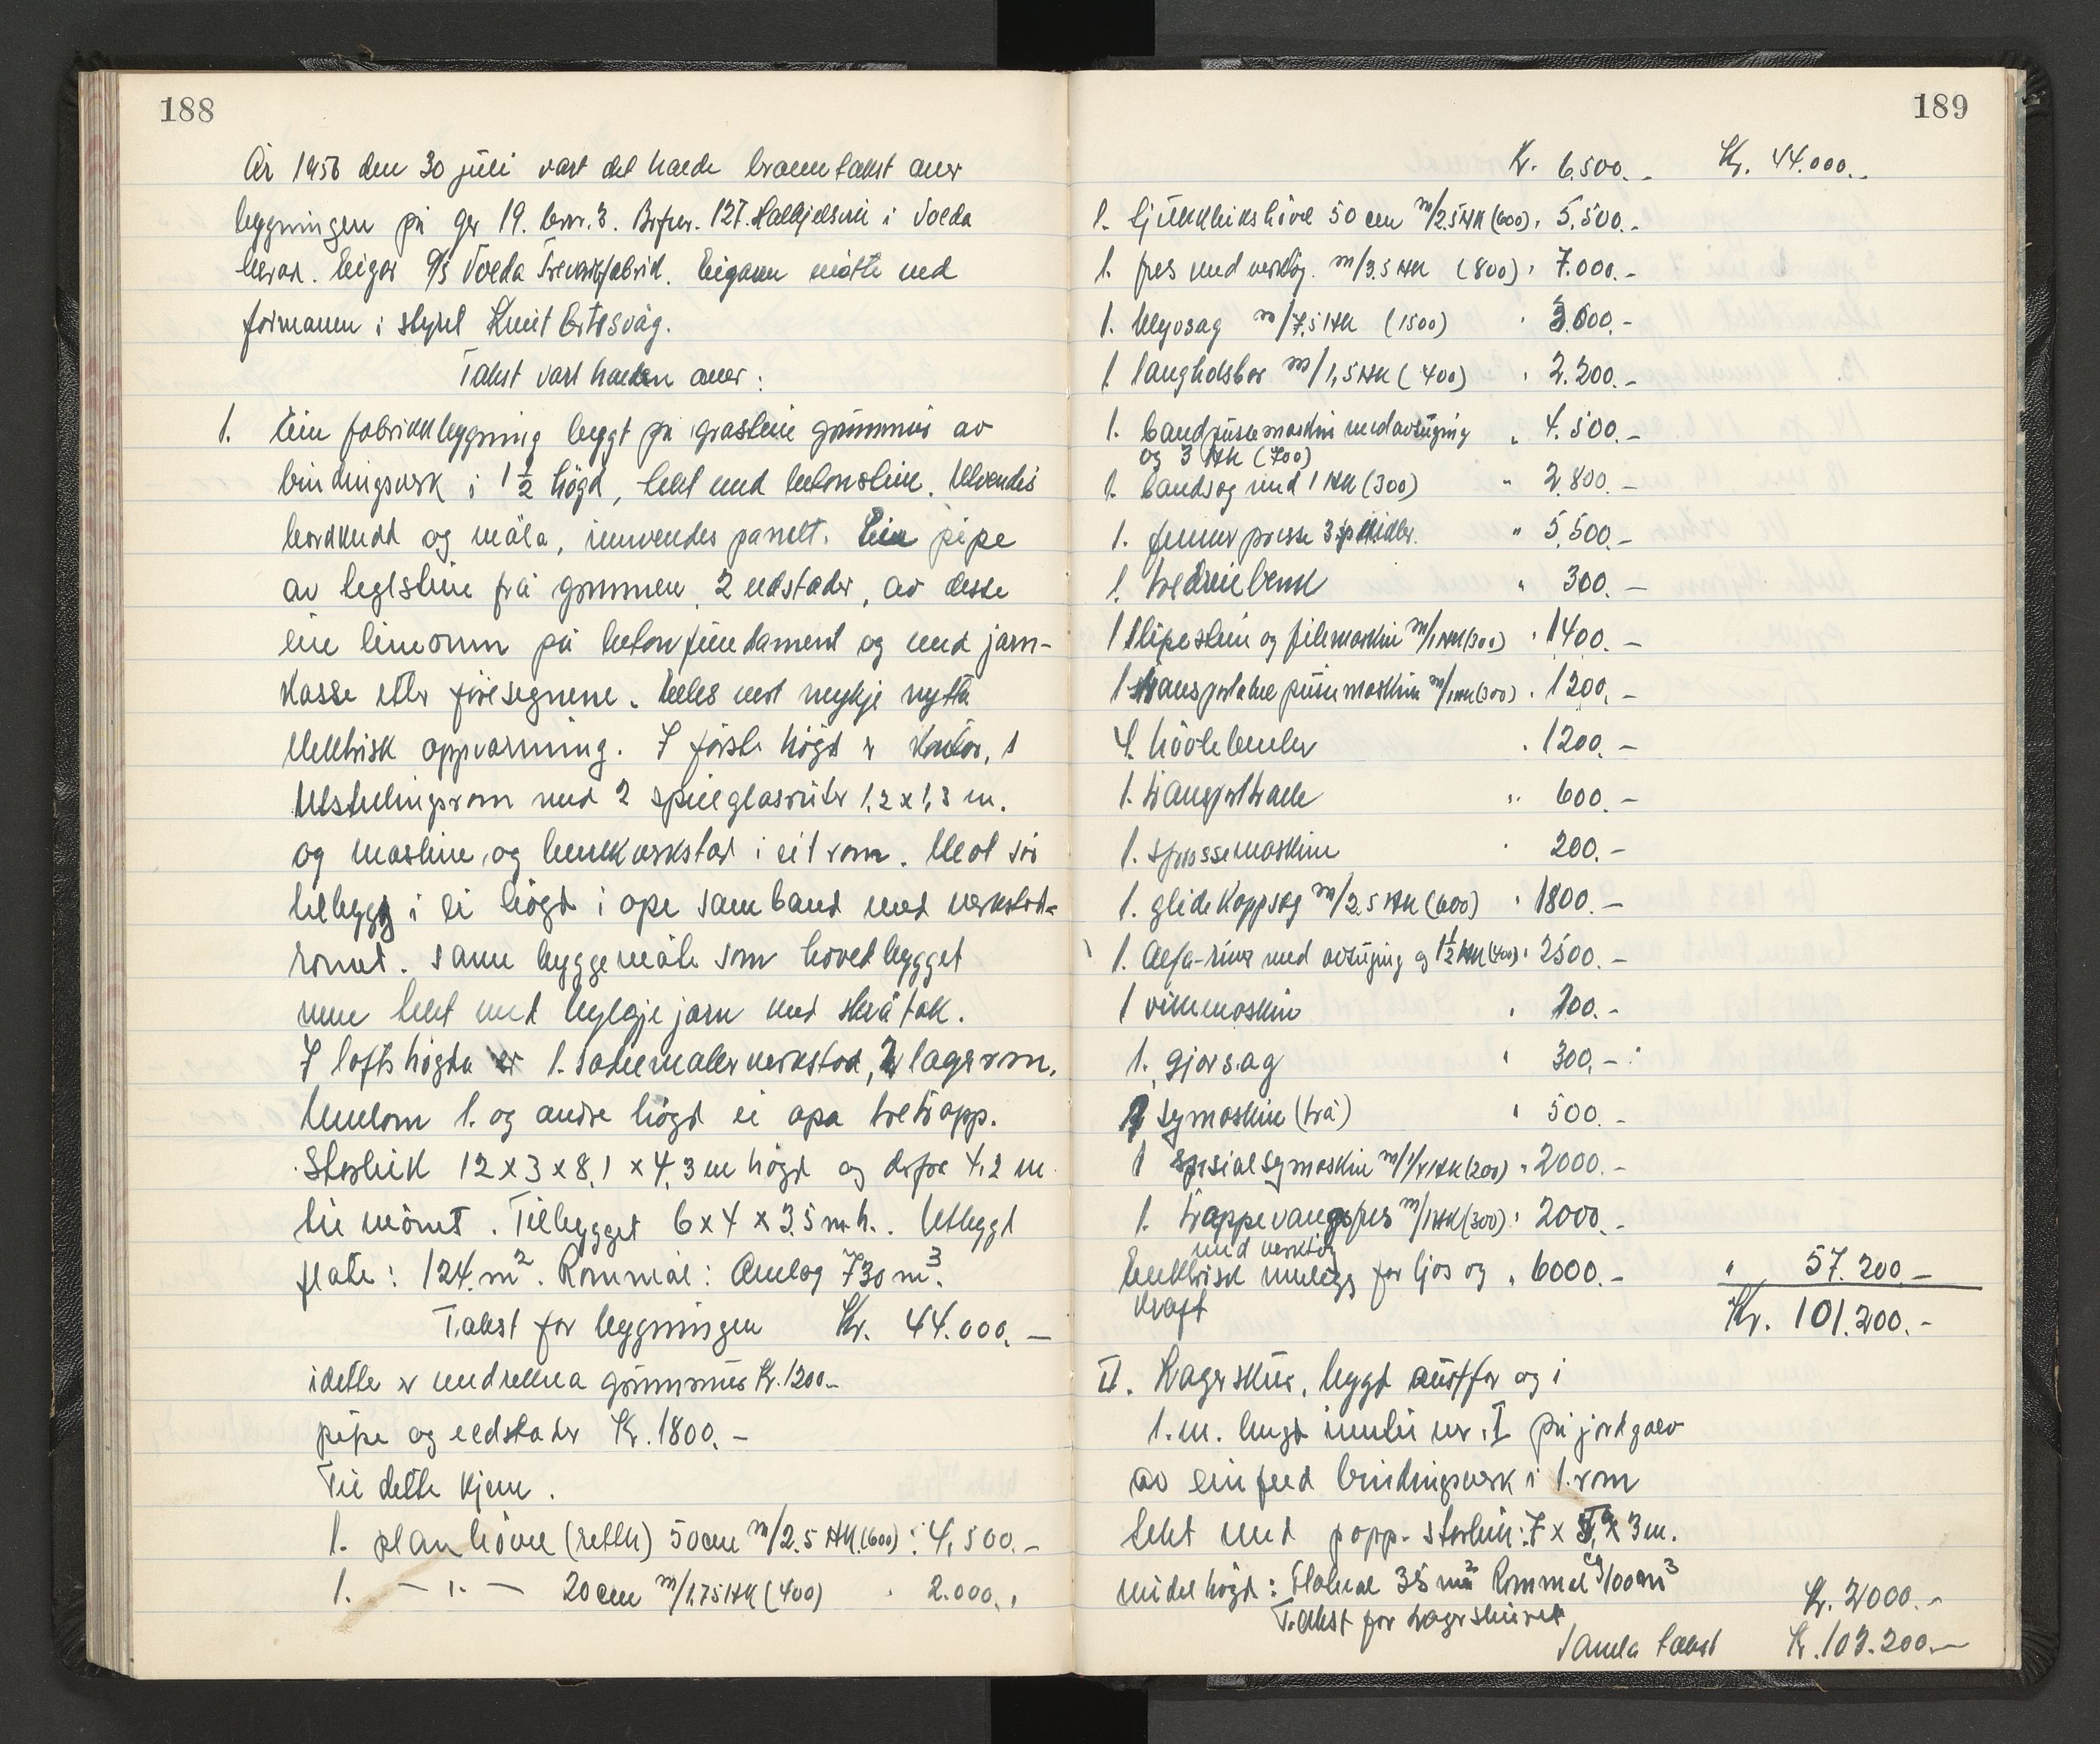 188
År 1956 den 30 juli vart det halde branntakst over
bygningen på gnr 19. bnr. 3. Brfnr. 127. Halkjelsvik i Volda
herad. Eigar A/S Volda Trevarefabrikk. Eigaren møtte ved
formannen i styret Knut Ertesvåg.
Takst vart halden over:
1. Ein fabrikkbygning bygt på gråstein grunnmur av
bindingsverk i 1 1/2 högd, tekt med betongstein. Utvendes
bordkledd og måla, innvendes panelt. Ein pipe
av teglstein frå grunnen, 2 eldstader, av desse
ein limomn på betonfundament og med jarn-
kasse etter föresegnene. Elles vert mykje nytta
elektrisk oppvarming. I første högd er kontor, 1
utstellingsrom med 2 speilglasruter 1,2 x 1,3 m.
og maskin og benkverkstad i eit rom. Mot sör
tilbygg i ei högd i ope samband med verkstad-
romet. Same byggemåte som hovedbygget
men tekt med bylgjejarn med skråtak.
I loftshögda er 1. salmemakerverkstad, 2 lagerrom.
Mellom 1. og andre högd ei opa tretrapp.
Storleik 12 x 3 x 8,1 x 4,3 m högd og derfra 4,2 m
til mönet. Tilbygget 6 x 4 x 3,5 m.h. Utbygd
flate: 124 m². Rommål: Omlag 730 m³.
Takst for bygningen Kr. 44.000.—
i dette er medrekna grunnmur Kr. 1200.-
pipe og eldstader Kr. 1800.-
Til dette kjem.
1. planhövel (rette) 50cm m/2.5 HK (600) : 4.500.-
1. — " — 20cm m/1.75 HK (400) " 2.000.,
189
Kr. 6.500.- Kr. 44.000.-
1. tjukkleikshövel 50 cm m/2.5 HK (600) " 5.500.-
1. fres med verktøy m/3.5 HK (800) " 7.000.-
1. kløyvsag m/7,5 HK (1500) " 3.000.-
1. langholsbor m/1,5 HK (400) " 2.200.-
1. bandpussemaskin med avsuging " 4.500.-
og 3 HK (700)
1. bandsag med 1 HK (300) " 2.800.-
1. finer presse 3 spindler. " 5.500.-
1. tredreiebenk " 300.-
1 slipestein og filemaskin m/1 HK (300) " 1400.-
1 transportabel pussemaskin m/1 HK (300) " 1200.-
4. hövlebenker " 1200.-
1. transporttralle " 600.-
1. sprossemaskin " 200.-
1. glidekappsag m/2.5 HK (600) " 1800.-
1. Alfa-river med avsuging og 1 1/2 HK (400) " 2500.-
1 vikkemaskin " 200.-
1. gjærsag " 300.-
2 symaskin (trå) " 500.-
1 spesialsymaskin m/1/4 HK (200) " 2000.-
1. trappevangefres m/1 HK (300) " 2000.-
med verktøy
Elektrisk innlegg for ljos og " 6000.- " 57.200.-
kraft
Kr. 101.200.-
II. Lagerskur, bygd austfor og i
1. m. lengd inntil nr. I på jordgolv
av einfeld bindingsverk i 1. rom
tekt med papp. Storleik: 7 x 5 x 3 m.
midelhögd: Flatmål 35 m² Rommål ca 100 m³
Takst for lagerskuret Kr. 2000.-
Samla takst Kr. 103.200.-